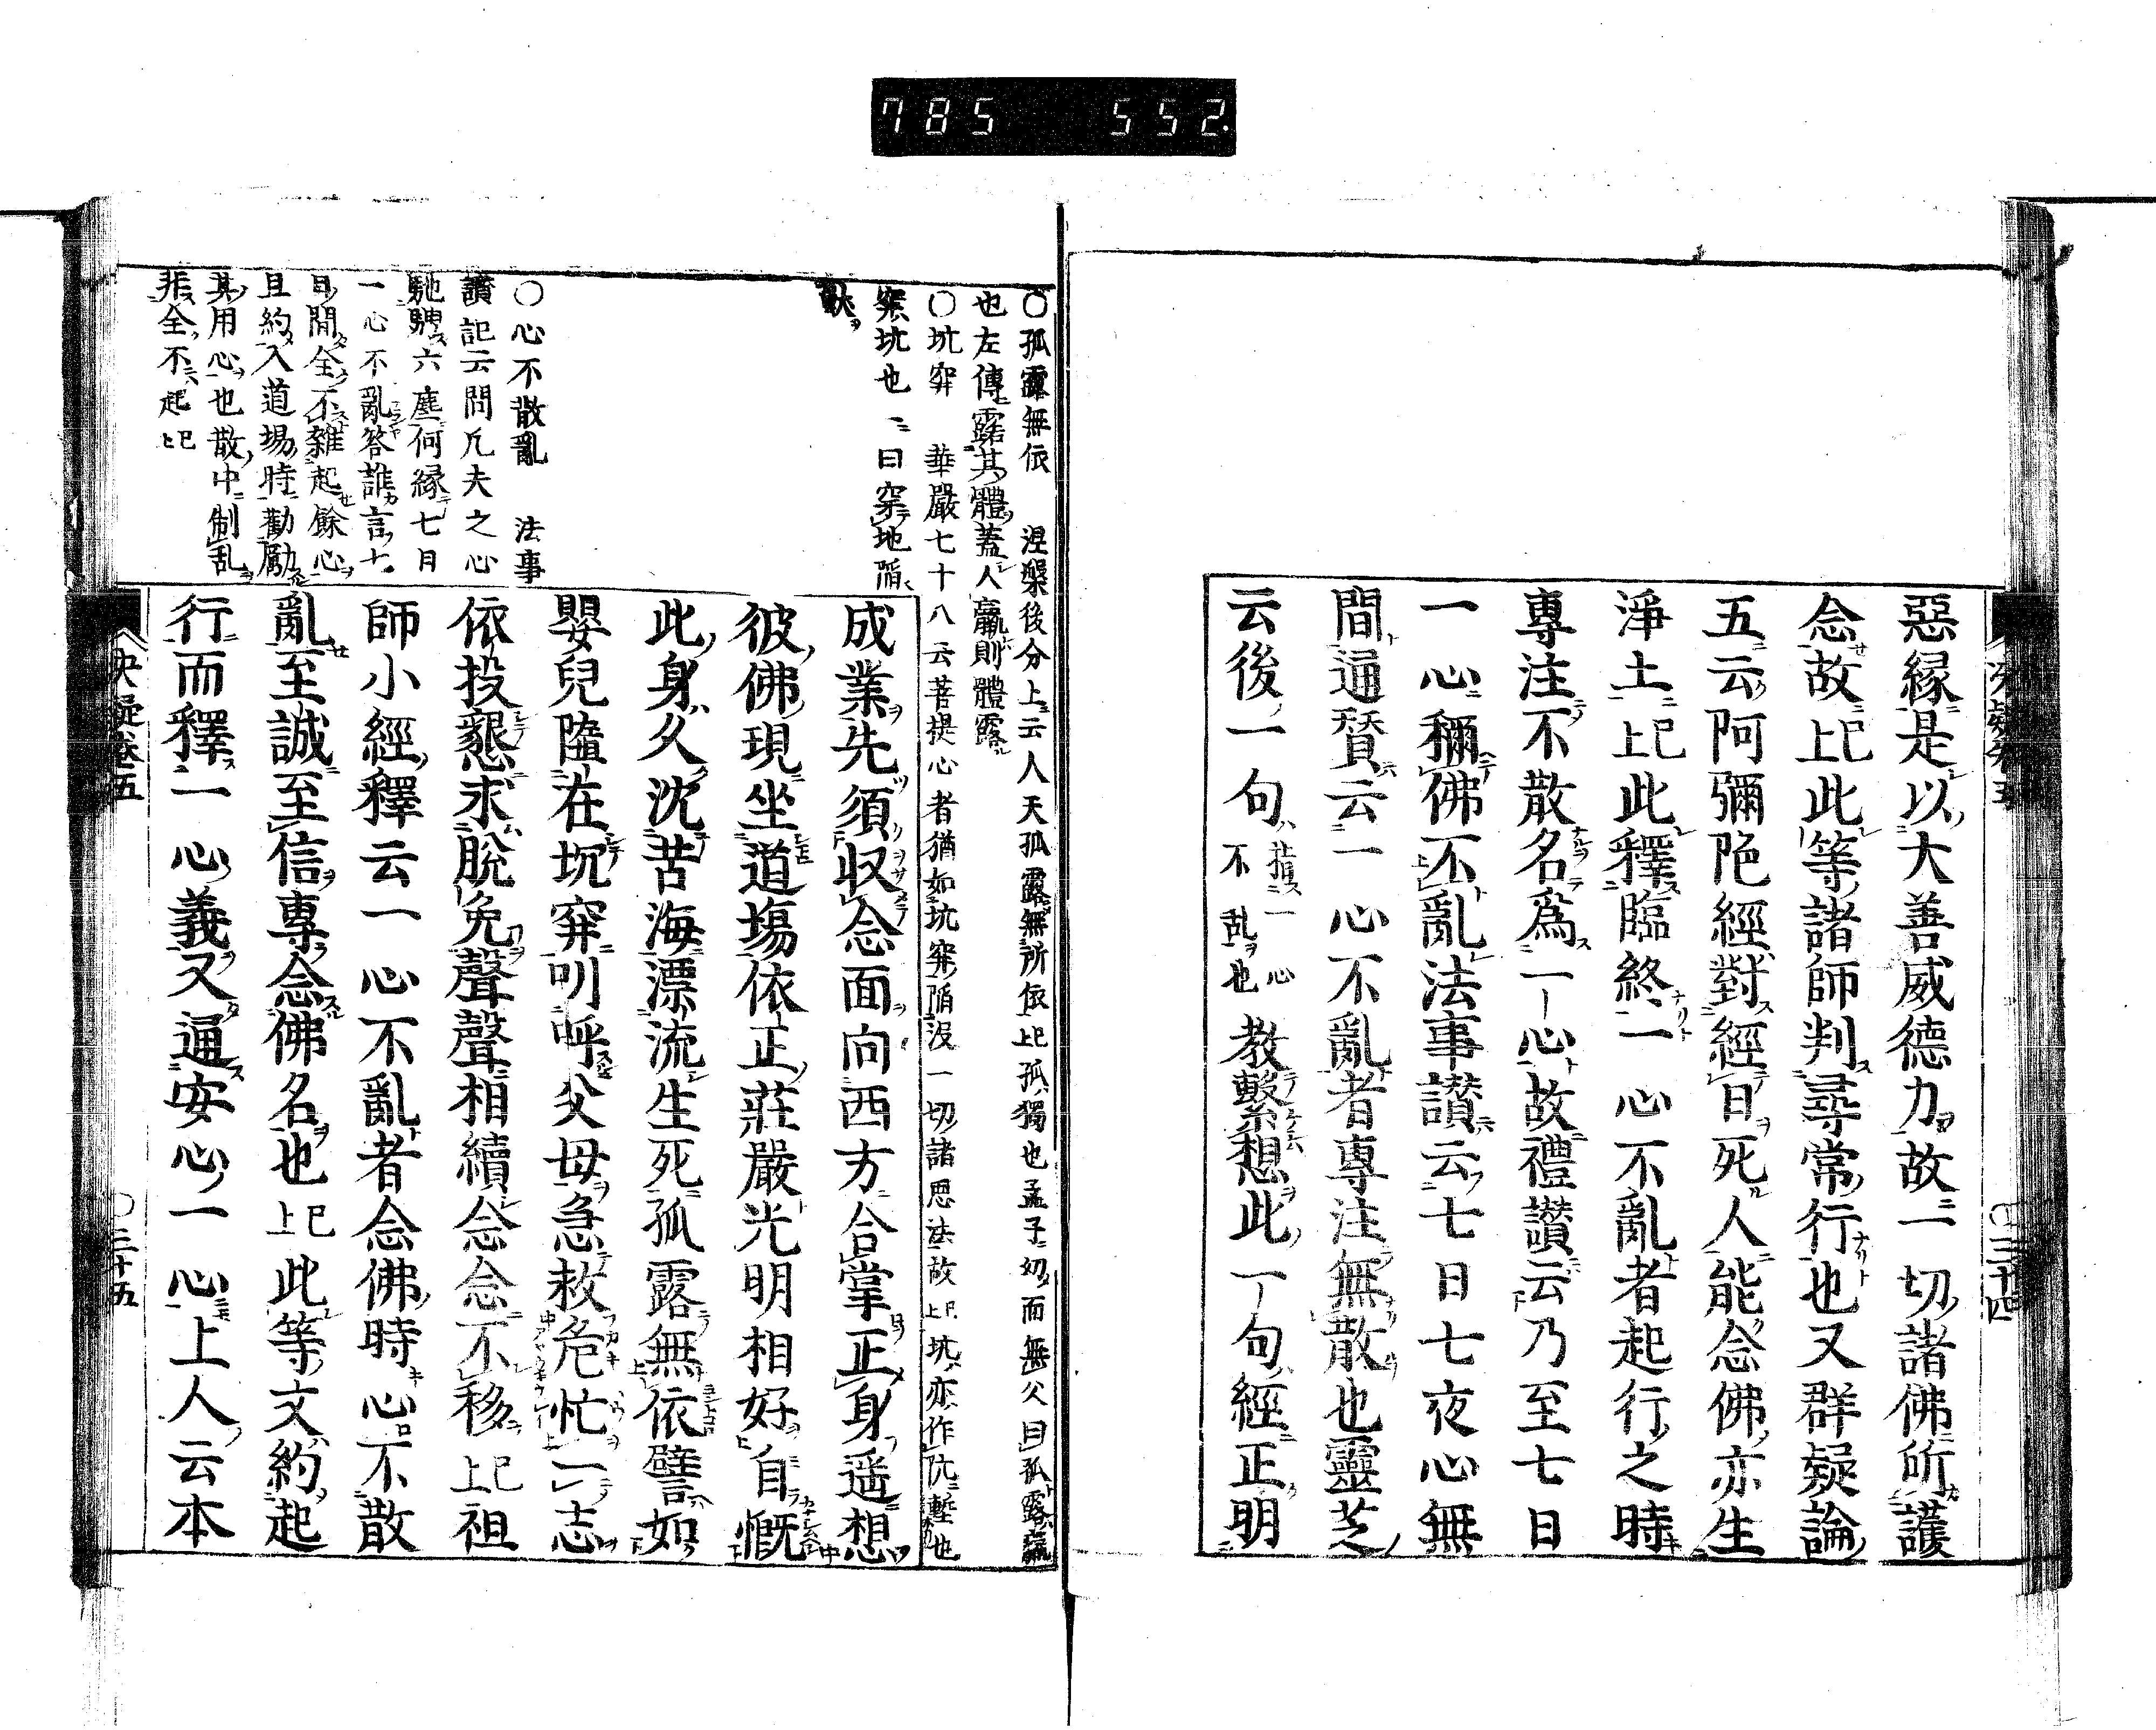 785 552.
惡縁是以大善威德力故一切諸佛所護
念故已上此等諸師判尋常行也又群疑論
五云阿彌陀經對經日死人能念佛亦生
淨土已上此釋臨終一心不亂者起行之時
專注不散名爲一心故禮讃云乃至七日
一心稱佛不亂法事讃云七日七夜心無
間通賛云一心不亂者專注無散也靈芝
云後一句指一心不乱也教繫想此一句經正明
○孤露無依 涅槃後分上云人天孤露無所依已上孤獨也孟子幼而無父曰孤露羸
也左傳露其體蓋人羸則體露
○坑穽 華嚴七十八云菩提心者猶如坑穽陷没一切諸思法故已上坑亦作阬塹也
穽坑也曰穿地陷
獸
成業先須収念面向西方合掌正身遥想
彼佛現坐道場依正莊嚴光明相好自慨
此身久沈苦海漂流生死孤露無依譬如
嬰兒墮在坑穽叫呼父母急救危忙一志
依投懇求脱免聲聲相續念念不移已上祖
師小經釋云一心不亂者念佛時心不散
亂至誠至信專念佛名也已上此等文約起
行而釋一心義又通安心一心上人云本
○心不散亂 法事
讃記云問凡夫之心
馳騁六塵何縁七日
一心不亂答誰言七
日間全不雜起餘心
且約入道場時勸勵
其用心也散中制乱
非全不起已上
決疑卷五 ○三十五